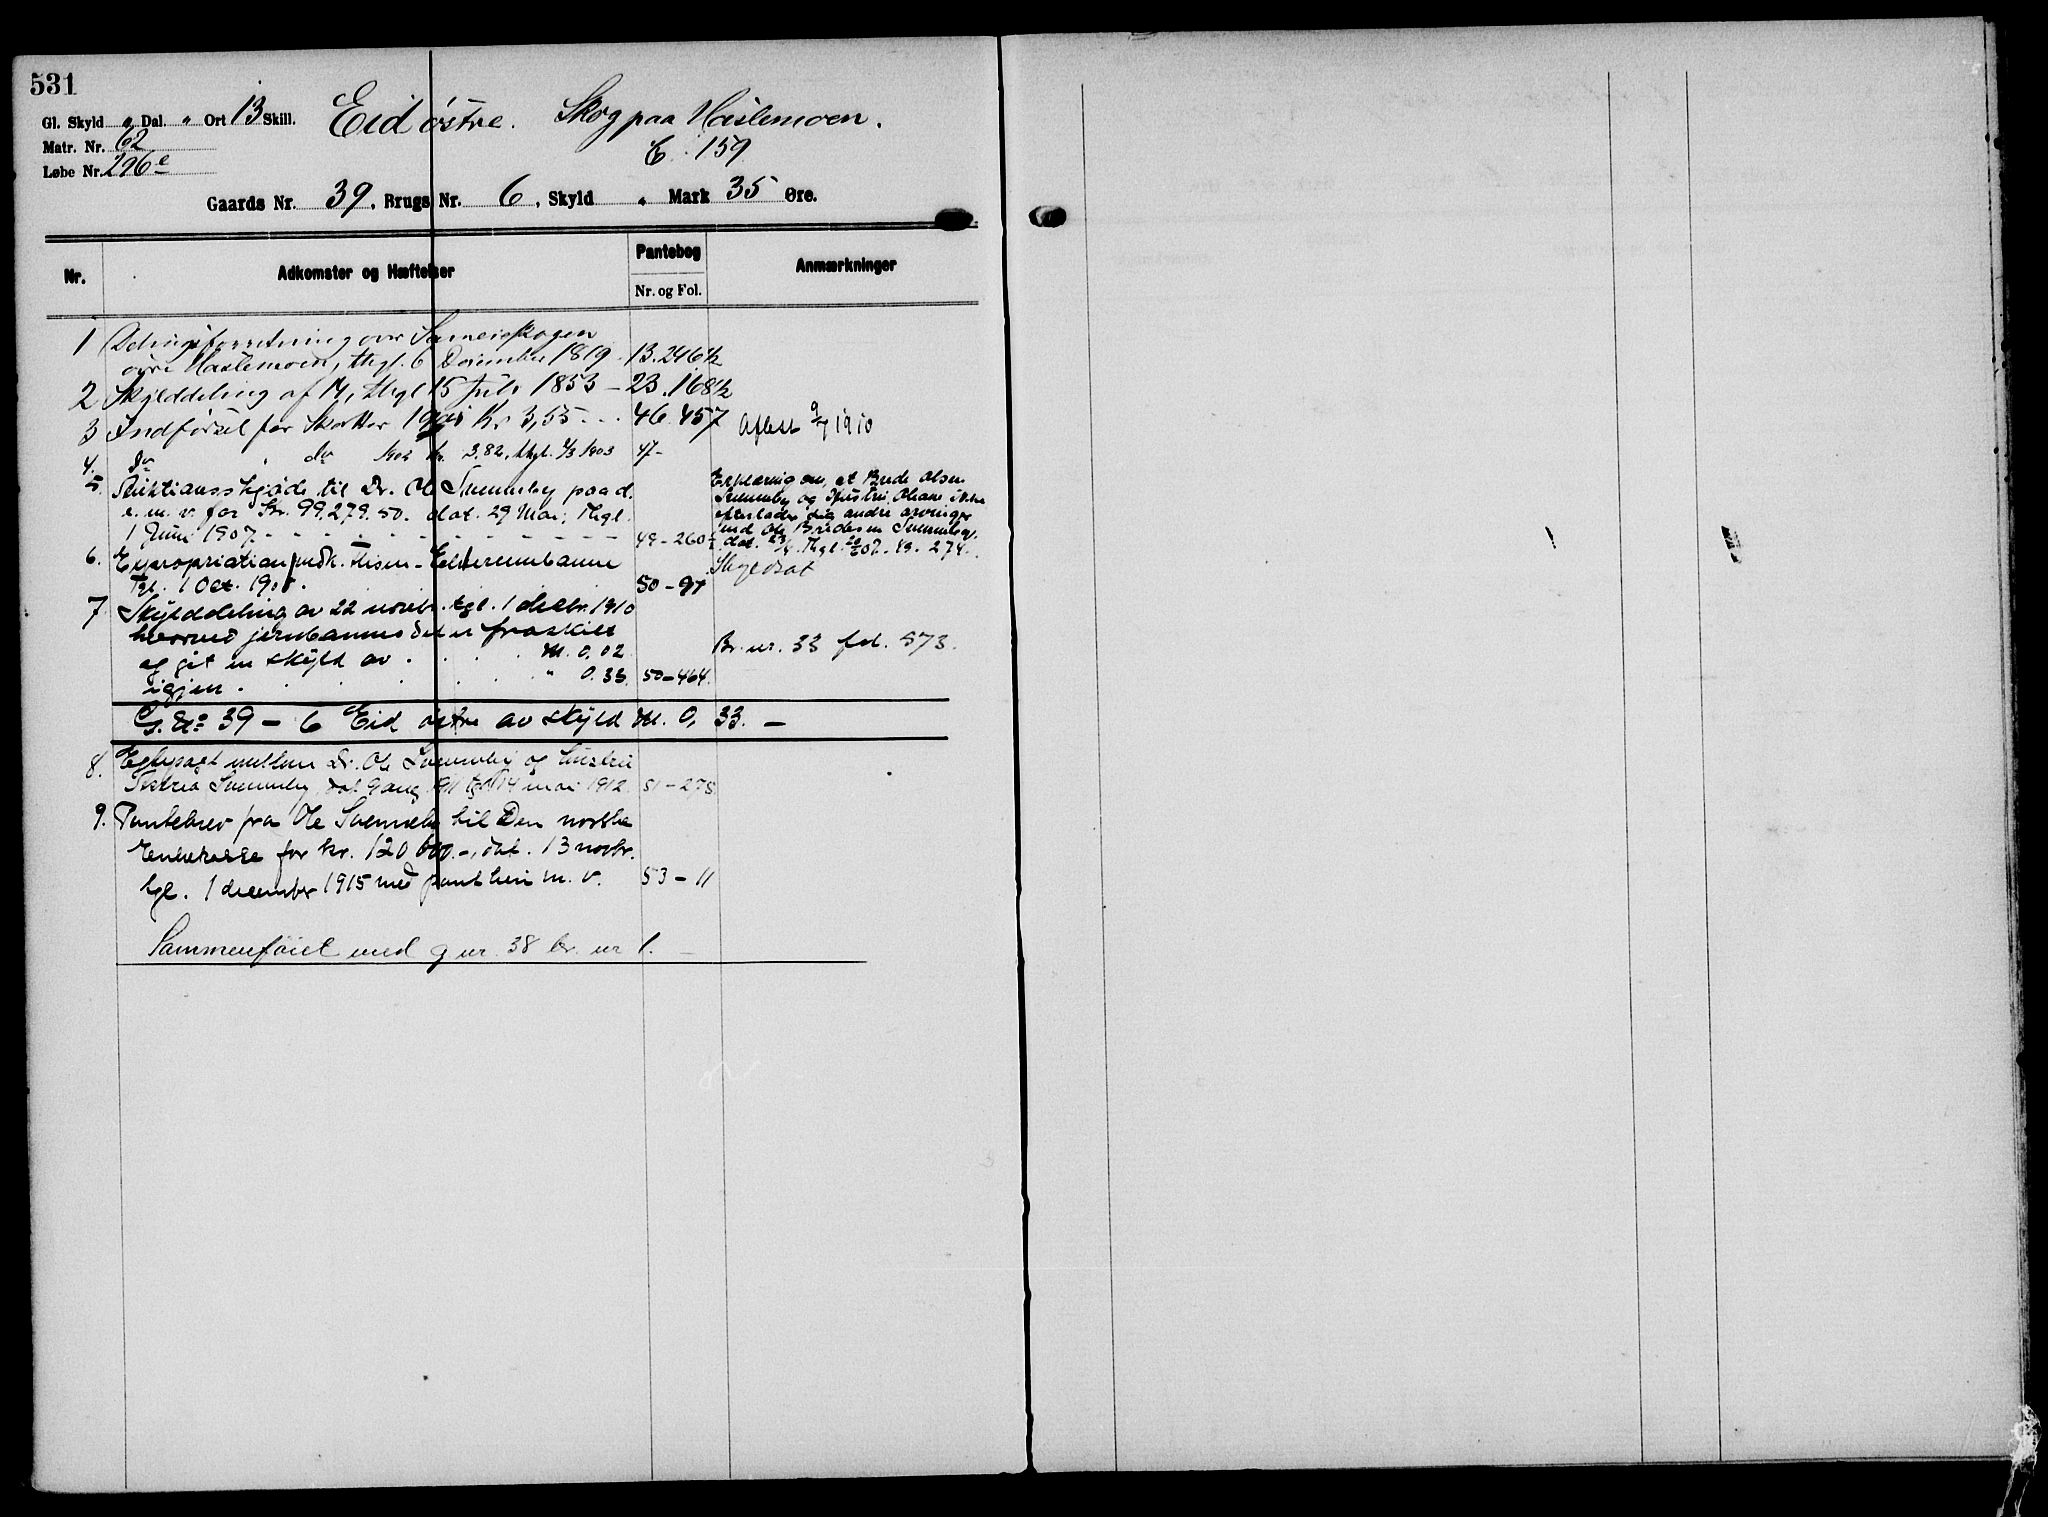 531
Gl. Skyld " Dal. " Ort 13 Skill.
Eid østre. Skog paa Haslemoen.
Matr. Nr. 62
E. 159
Løbe Nr. 296e
Gaards Nr. 39, Brugs Nr. 6, Skyld " Mark 35 Øre.
Nr. Adkomster og Hæftelser Pantebog Nr. og Fol. Anmærkninger
1 Delingsforretning over Sameieskogen
øvre Haslemoen, thgl. 6 December 1819. 13.246½
2 Skylddeling af 14, thgl 15 Juli 1853 - 23.168½
3 Indførsel for Skatter 1901 Kr 3,55 - - 46.457 Aflæst 9/7 1910
4. do " do 1902 Kr. 3.82, thgl. 4/3 1903 47-
5. Auktionsskjøde til Dr. Ole Svenneby paa d.
e. m. v. for Kr. 99,279.50. dat. 29 Mai, Thgl.
1 Juni 1907. - - - 49-260
Erklæring om, at Brede Olsen
Svenneby og Hustru Oliane ikke
efterlader sig andre arvinger
end Ole Bredesen Svenneby.
dat. 23/4 Thgl. 07. 49-274.
6. Expropriation vedk. Flisen-Elverumbanen
Tgl. 1 Oct. 1908. 50-91
Skyldsat
7 Skylddeling av 22 novbr. tgl. 1 decbr. 1910
hvorved jernbanens del er fraskilt
og git en skyld av . . . M. 0,02 Br. nr. 33 fol. 573.
igjen . . . " 0.33. 50-464.
G. No 39 - 6 Eid østre av skyld M. 0,33. -
8. Egtepagt mellem Dr. Ole Svenneby og hustru
Svenneby, dat 9 aug 1911 tgl 14 mai 1912. 51-275
9. Pantebrev fra Ole Svenneby til Den norske
Enkekasse for kr. 120 000.-, dat. 13 novbr.
tgl. 1 december 1915 med pant heri m. v. 53-11
Sammenføiet med g nr. 38 br. nr 1. -